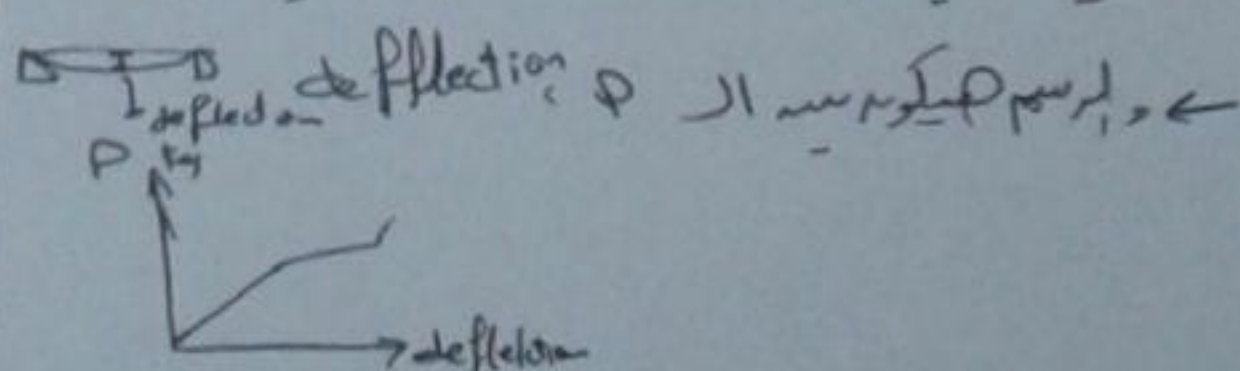 ← والرسم هيكون بين الـ P ، deflection
deflection
P, kg
deflection